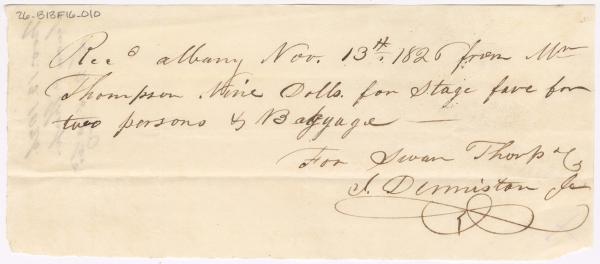 26-B13F16-010
Recd albany Nov. 13th. 1826 from Mr
Thompson Nine Dolls. for Stage fare for
two persons & Baggage —
For Swan Thorp & Co
I. Denniston Jr